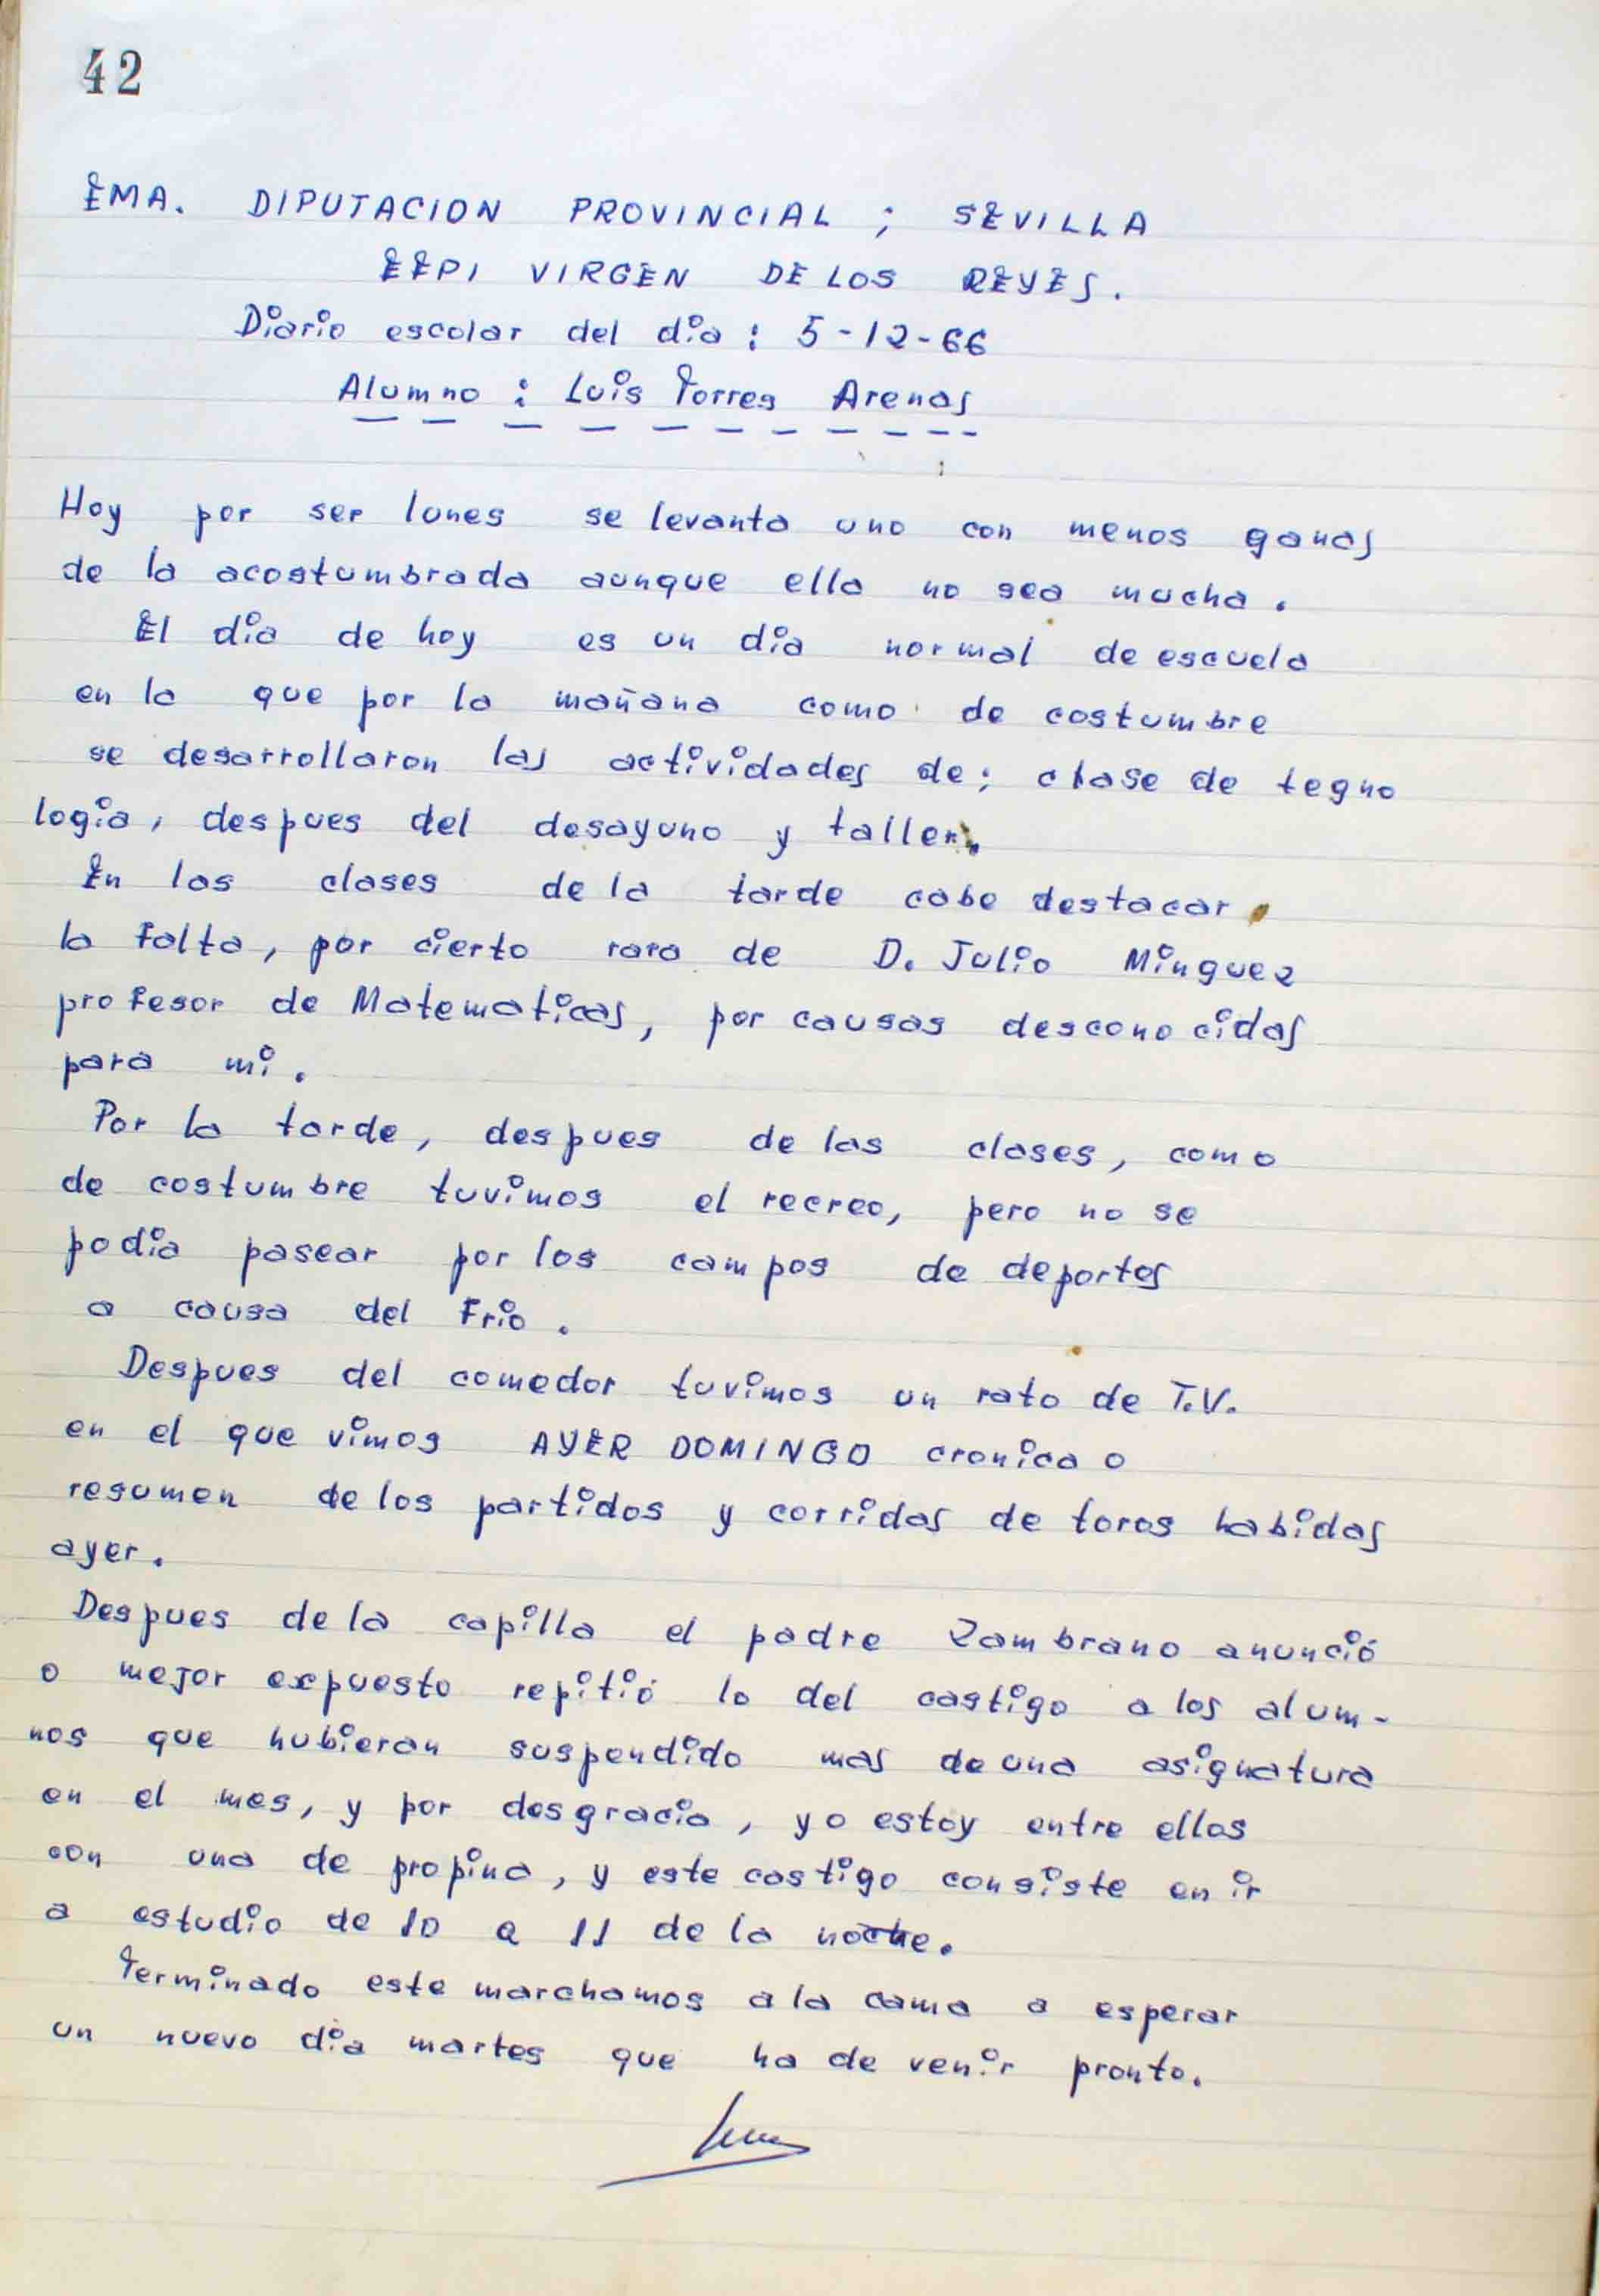 42
EMA. DIPUTACION PROVINCIAL ; SEVILLA
EEPI VIRGEN DE LOS REYES.
Diario escolar del dia : 5-12-66
Alumno : Luis Torres Arenas
Hoy por ser lunes se levanta uno con menos ganas
de la acostumbrada aunque ella no sea mucha.
El dia de hoy es un dia normal de escuela
en la que por la mañana como de costumbre
se desarrollaron las actividades de; clase de tegno
logia, despues del desayuno y taller.
En las clases de la tarde cabe destacar
la falta, por cierto rara de D. Julio Minguez
profesor de Matematicas, por causas desconocidas
para mi.
Por la tarde, despues de las clases, como
de costumbre tuvimos el recreo, pero no se
podia pasear por los campos de deportes
a causa del Frio.
Despues del comedor tuvimos un rato de T.V.
en el que vimos AYER DOMINGO cronica o
resumen de los partidos y corridas de toros habidas
ayer.
Despues de la capilla el padre Zambrano anunció
o mejor expuesto repitió lo del castigo a los alum-
nos que hubieran suspendido mas de una asignatura
en el mes, y por desgracia, yo estoy entre ellos
con una de propina, y este castigo consiste en ir
a estudio de 10 a 11 de la noche.
Terminado este marchamos a la cama a esperar
un nuevo dia martes que ha de venir pronto.